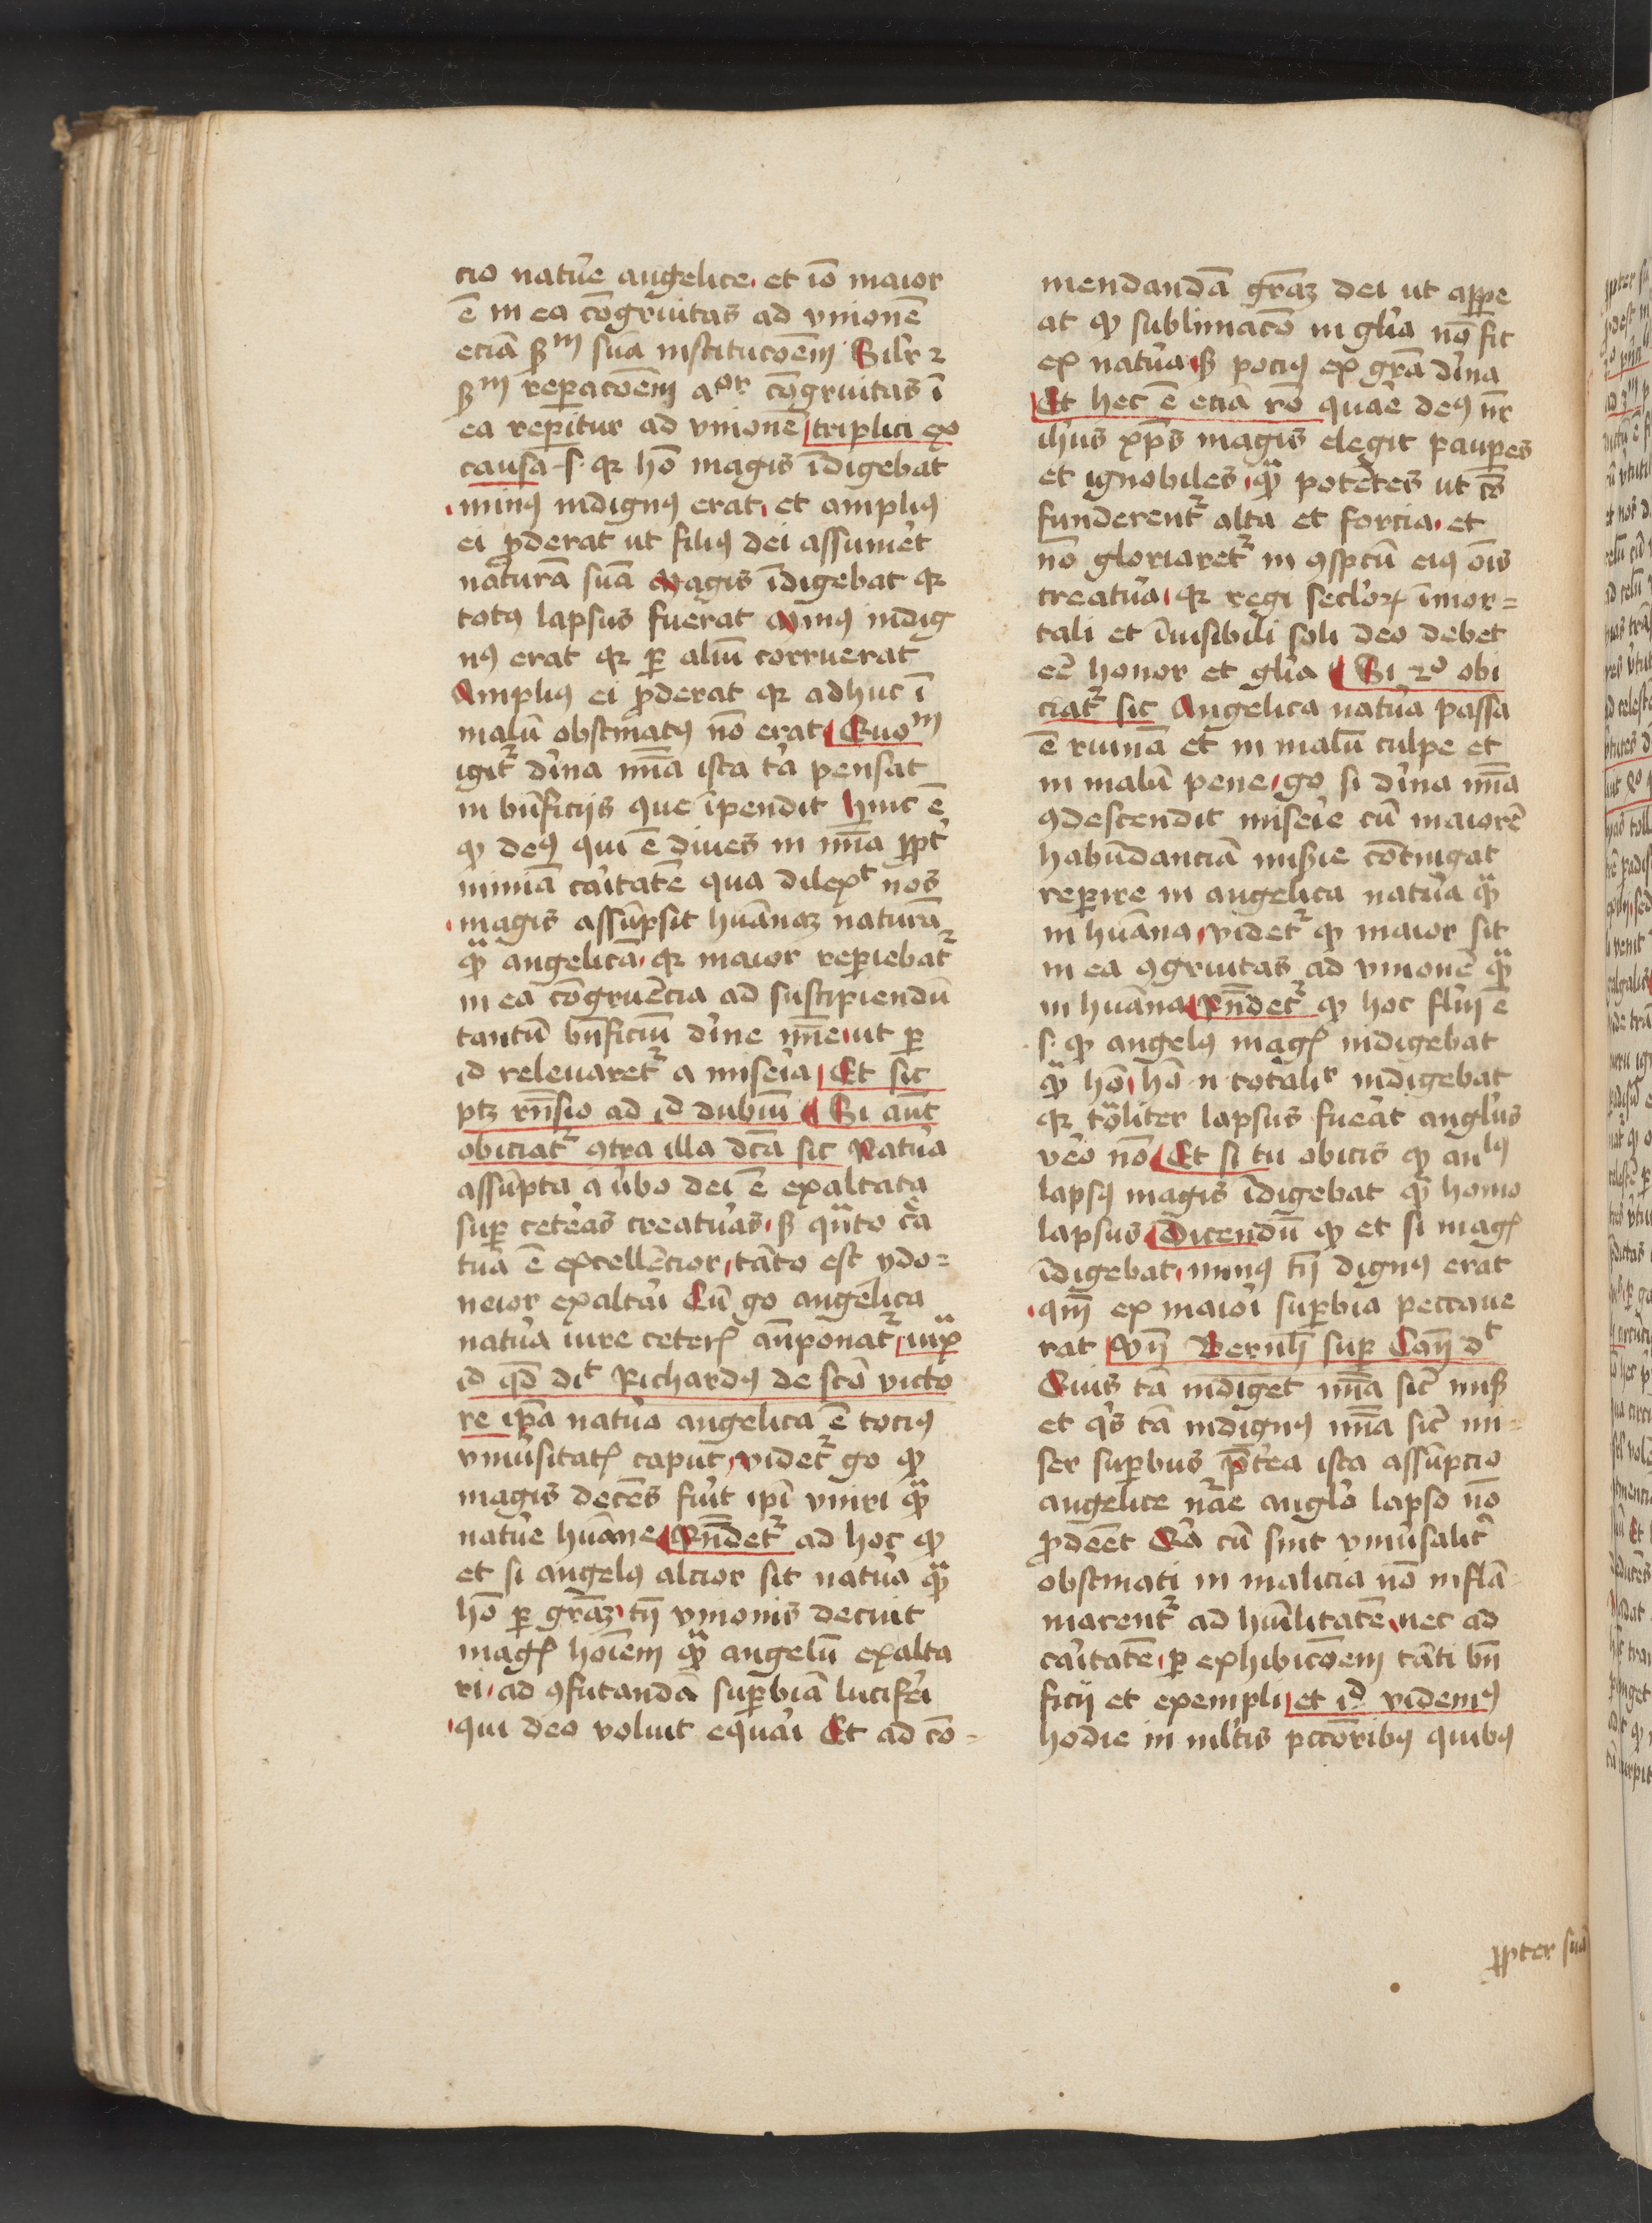 cio natu᷑e angelice et iō maior
ē in ea cōgruitas ad vnionē
eciā ẜm suā institucōem Silr ⁊
ẜm repacōem aor cōgruitas ī
ea reperitur ad vnionē triplici ex
causa .s. qr hō magis īdigebat
minꝰ indignꝰ erat et ampliꝰ
ei ꝓderat ut filiꝰ dei assumet᷑
naturā suā Magis īdigebat qr
totꝰ lapsus fuerat Minꝰ indig
nꝰ erat qr ꝑ aliū corruerat
Ampliꝰ ei ꝓderat qr adhuc ī
malū obstinatꝰ nō erat Quom
igit᷑ dīna mīa ista tā pensat
in bn̄ficijs que īpendit Hinc ē
ꝙ deꝰ qui ē diues in mīa ꝓpt᷑
nimiā caītatē qua dilext nos
magis assūpsit huānaꝫ naturā
ꝙ̄ angelicā qr maior reperiebat᷑
in ea cōgruēcia ad suscipiendū
tantū bn̄ficiū dīne mīe ut ꝑ
id releuaret᷑ a miseīa Et sic
ptꝫ rn̄sio ad id dubiū Si aūt
obiciat᷑ ꝯtra illa dcā sic Natu᷑a
assūpta a u᷑bo dei ē exaltata
suꝑ cete᷑as creatu᷑as ẜ qn̄to c᷑a
tu᷑a ē excellēcior tāto est ydo=
neior exaltai᷑ Cū go angelica
natu᷑a iure ceteꝝ an̄ponat᷑ iux̄
id qd̄ dit Richardꝰ de scō victo
re ip̄a natu᷑a angelica ē tociꝰ
vniu᷑sitatꝭ caput videt᷑ go ꝙ
magis decēs fuīt ip̄i vniri ꝙ̄
natu᷑e huāne Rn̄det᷑ ad hoc ꝙ
et si angelꝰ alcior sit natu᷑a ꝙ̄
hō ꝑ gr̄aꝫ tn̄ vnionis decuit
magꝭ hoīem ꝙ̄ angelū exalta
ri ad ꝯfutandā suꝑbiā lucife᷑i
qui deo voluit equai᷑ Et ad cō=
mendandā gr̄aꝫ dei ut appe
at ꝙ sublimacō in glīa nō fit
ex natu᷑a ẜ pociꝰ ex gr̄a dīna
Et hec ē eciā rō quae᷑ deꝰ nr̄
ihūs xp̄s magis elegit pauꝑes
et ignobiles ꝙ̄ potētes ut cō
funderent᷑ alta et forcia et
nō gloriaret᷑ in ꝯspcū eiꝰ oīs
creatu᷑a qr regi seclo᷑ꝝ īmor=
tali et īuisibili soli deo debet
eē honor et glīa Si 2o obi
ciat᷑ sic Angelica natu᷑a passa
ē ruinā et in malū culpe et
in malū pene go si dīna mīa
ꝯdescendit misei᷑e cū maiorē
habūdanciā misie cōtingat
reperire in angelica natu᷑a ꝙ̄
in huāna videt᷑ ꝙ maior sit
in ea ꝯgruitas ad vnionē ꝙ̄
in huāna Rn̄det᷑ ꝙ hoc flm̄ ē
.s. ꝙ angelꝰ magꝭ indigebat
ꝙ̄ hō hō n totalir indigebat
qr tōliter lapsus fue᷑at angl᷑us
ve᷑o nō Et si tu obicis ꝙ anlꝰ
lapsꝰ magis īdigebat ꝙ̄ homo
lapsus Dicendū ꝙ et si magꝭ
īdigebat minꝰ tn̄ dignꝰ erat
qm̄ ex maioi᷑ suꝑbia peccaue
rat Vn̄ Bernh̄ suꝑ Can̄ dt
Quis tā indiget mīa sic᷑ misꝭ
et qi᷑s tā indignꝰ mīa sic᷑ mi=
ser suꝑbus p̄te᷑a ista assūpcio
angelice nāe angl᷑o lapso nō
ꝓdeēt Q᷑a cū sint vniu᷑salit᷑
obstinati in malicia nō inflā
marent᷑ ad huīlitatē nec ad
caītatē ꝑ exhibicōem tāti bn̄
ficij et exempli et id videmꝰ
hodie in mltis pctōribꝰ quibꝰ
ꝓpter suā